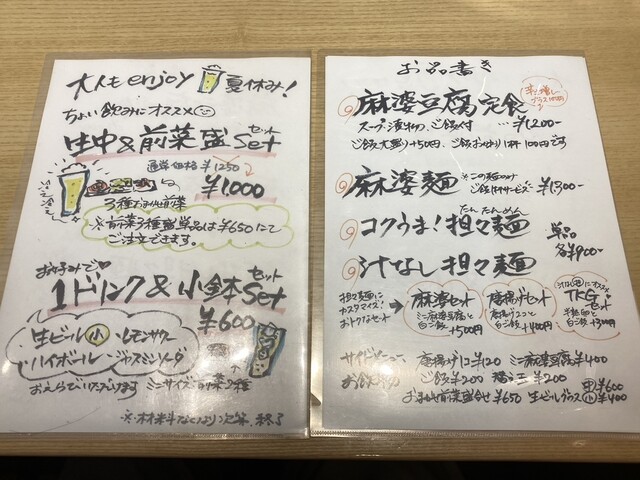 大人もenjoy 夏休み!
ちょい飲みにオススメ
生中&前菜盛Set セット
通常価格¥1250
¥1,000
冷え冷え
3種
※前菜3種盛単品は¥650にて
ご注文できます。
お好みで
1ドリンク&小鉢Set セット
¥600
生ビール(小)・レモンサワー
ハイボール・ジャスミンソーダ
おえらびいただけます ミニサイズ前菜2種
※材料なくなり次第、終了
お品書き
麻婆豆腐定食
スープ・漬物・ご飯付 ¥1200-
ご飯大盛り+50円、ご飯おかわり1杯100円です
麻婆麺 ※この麺のみ ご飯1杯サービス ¥1300-
たんたんめん
コクうま!担々麺 単品
各¥900-
汁なし担々麺
担々麺に
カスタマイズ!
おトクなセット
麻婆セット
ミニ麻婆豆腐と
白ご飯 +500円
唐揚げセット
唐揚げ2コと
白ご飯 +400円
TKGセット
半熟卵と
白ご飯 +300円
サイドメニュー 唐揚げ1コ¥120 ミニ麻婆豆腐¥400
お飲み物 ご飯¥200 ¥200
前菜盛合せ¥650 生ビール グラス (中)¥600 (小)¥400